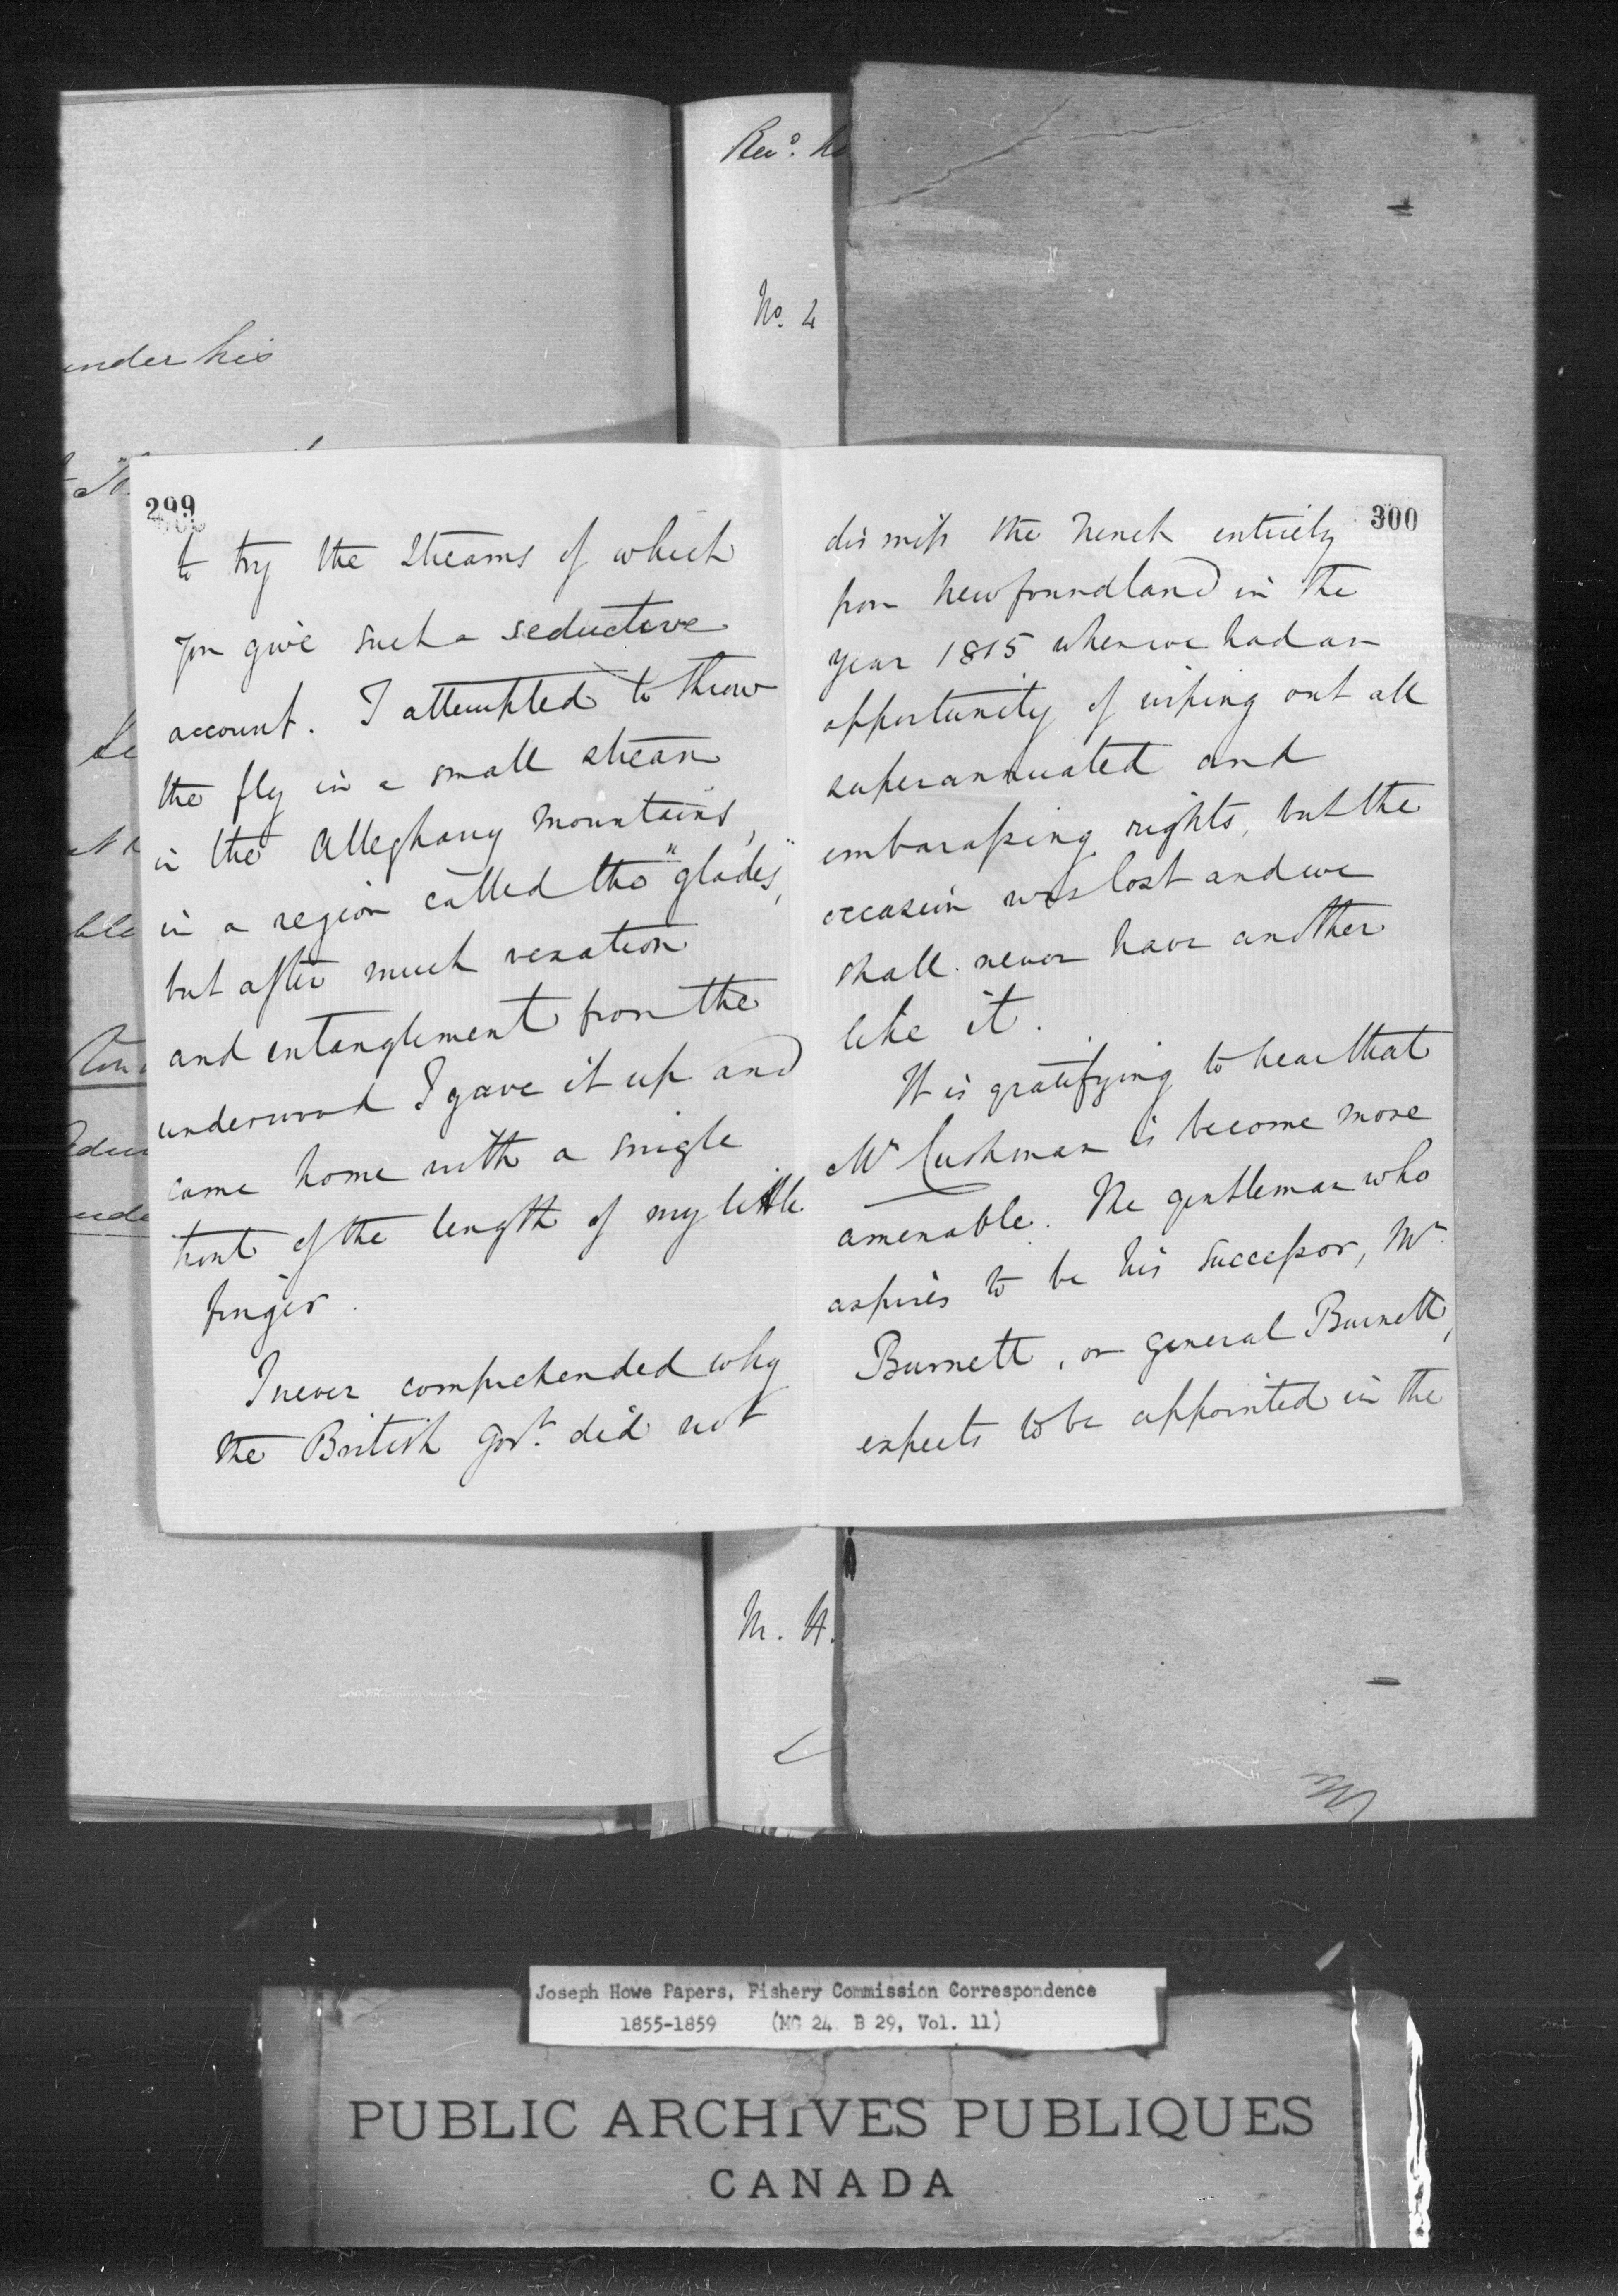 under his
Rec^d.
No. 4
299
to try the streams of which
you give such a seductive
account. I attempted to throw
the fly in a small stream
in the Alleghany mountains,
in a region called the "glades",
but after much vexation
and entanglement from the
underwood I gave it up and
came home with a single
trout of the length of my little
finger.
I never comprehended why
the British Gov^t. did not
300
dismiss the French entirely
from Newfoundland in the
year 1815 when we had an
opportunity of wiping out all
superannuated and
embarassing rights, but the
occasion was lost and we
shall never have another
like it.
It is gratifying to hear that
M^r Cushman is become more
amenable. The gentleman who
aspires to be his successor, M^r.
Burnett, or General Burnett,
expects to be appointed in the
M. H.
Joseph Howe Papers, Fishery Commission Correspondence
1855-1859 (MG 24 B 29, Vol. 11)
PUBLIC ARCHIVES PUBLIQUES
CANADA